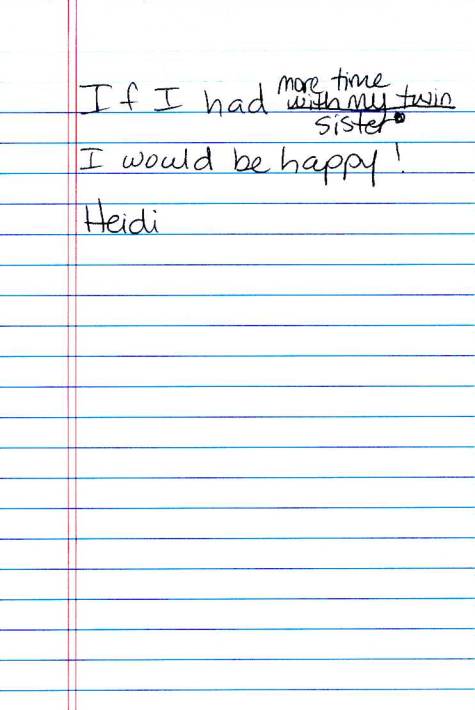 If I had more time
with my twin
sister.
I would be happy!
Heidi